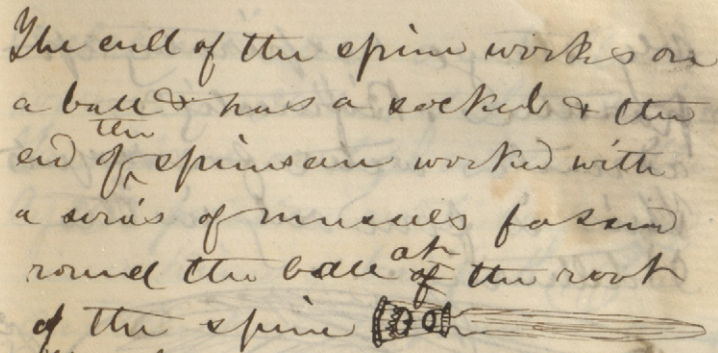 The end of the spine works on
a ball & has a socket & the
end of the spines are worked with
a series of mussels fassend
round the ball at of the root
of the spine